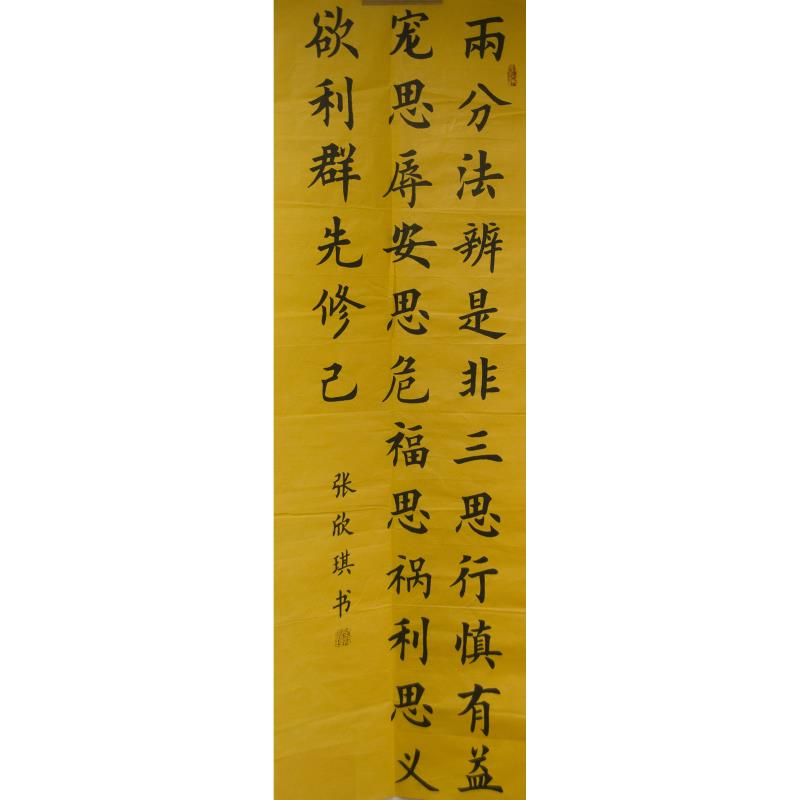 兩分法辨是非三思行慎有益
宠思辱安思危福思祸利思义
欲利群先修己
张欣琪书